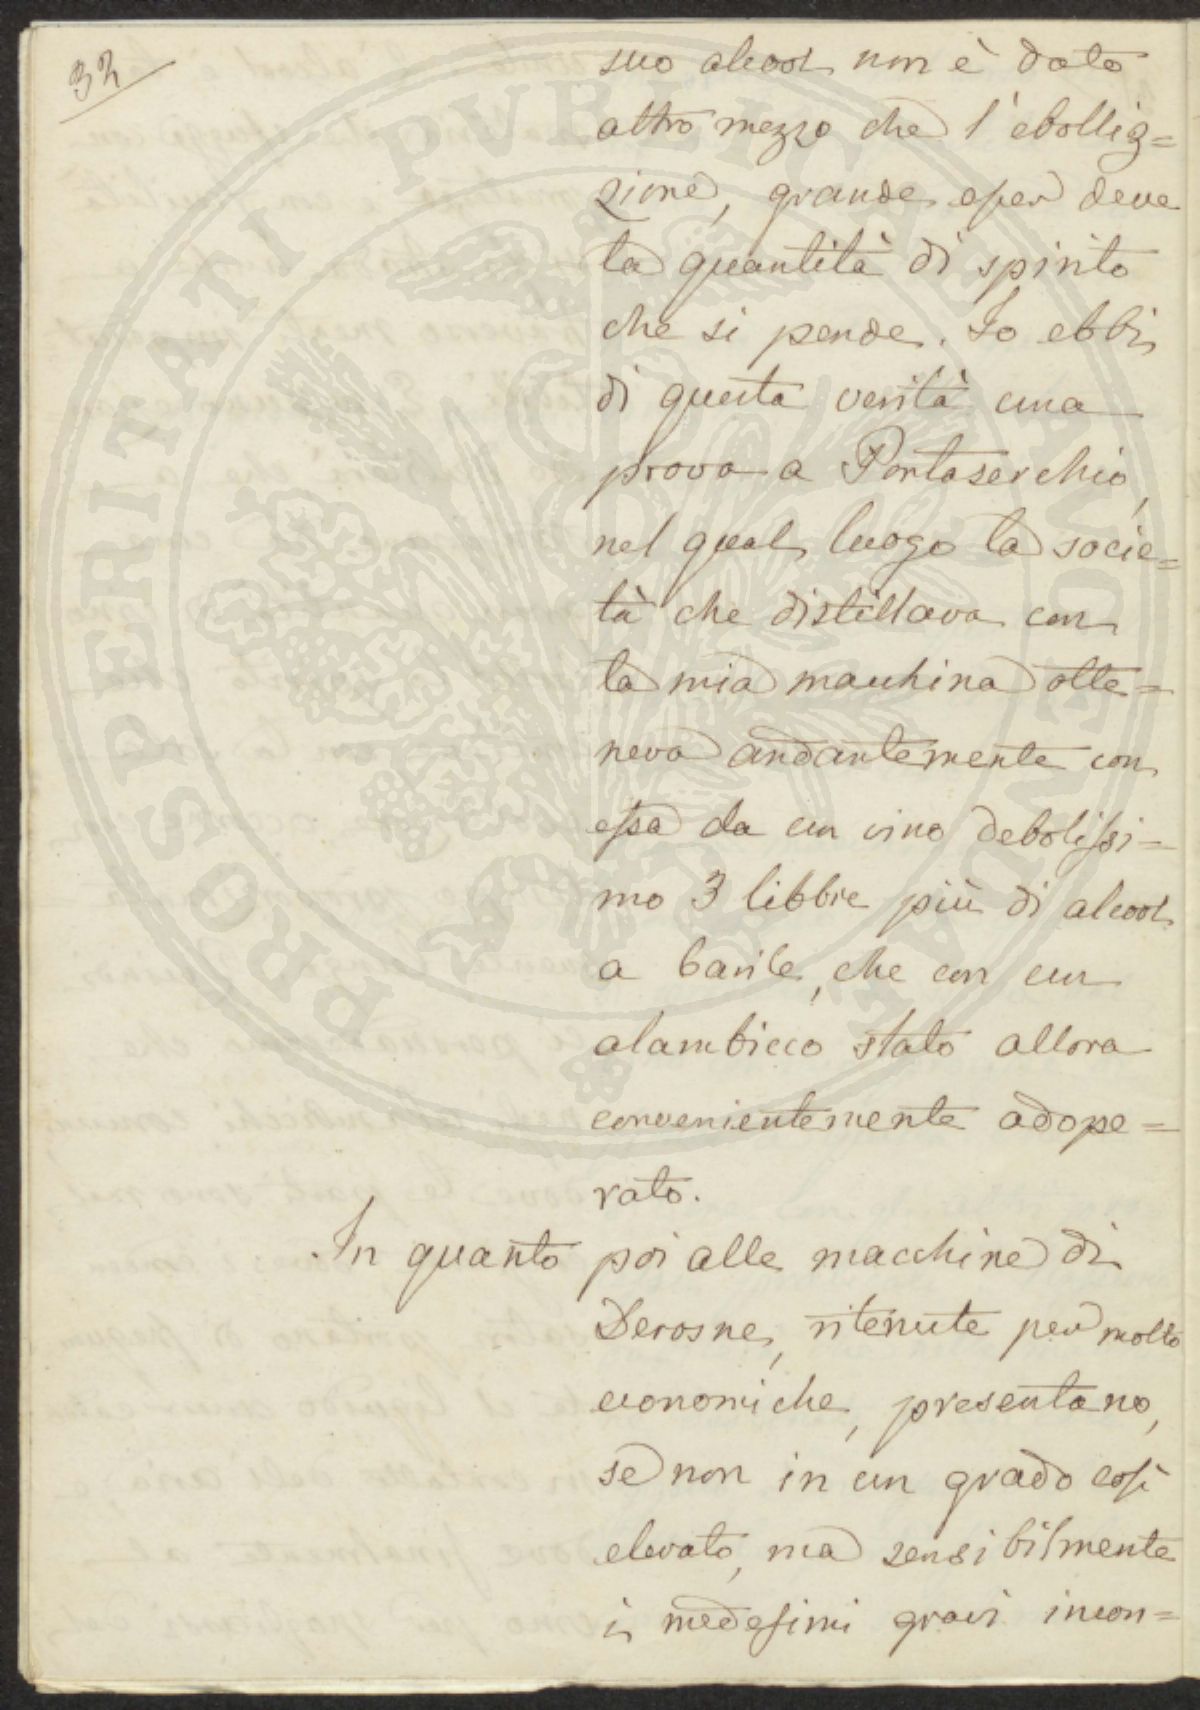 32
suo alcool non è dato
altro mezzo che l'ebolliz=
zione, grande esser deve
la quantità di spirito
che si perde. Io ebbi
di questa verità una
prova a Pontaserchio,
nel qual luogo la socie=
tà che distillava con
la mia macchina otte=
neva andantemente con
essa da un vino debolissi=
mo 3 libbre più di alcool
a barile, che con un
alambicco stato allora
convenientemente adope=
rato.
In quanto poi alle macchine di
Derosne, ritenute per molto
economiche, presentano,
se non in un grado così
elevato, ma sensibilmente
i medesimi gravi incon=
PROSPERITATI PVBLICAE AVGENDAE